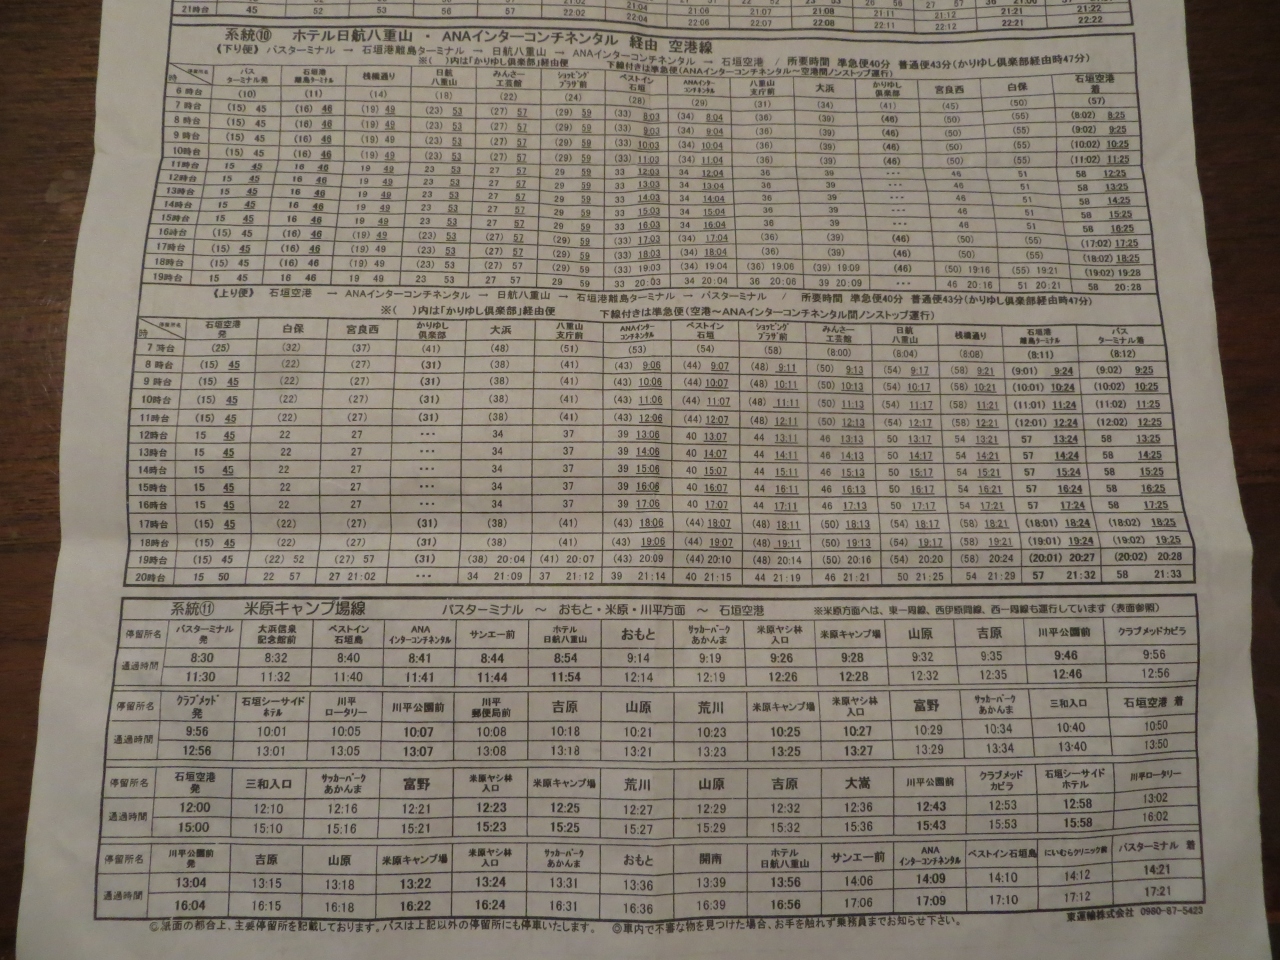 21時台 45 52 53 56 57 22:02 22:04 22:06 22:07 22:08 22:11 22:12 22:21 22:22
系統⑩ ホテル日航八重山・ANAインターコンチネンタル 経由 空港線
《下り便》 バスターミナル → 石垣港離島ターミナル → 日航八重山 → ANAインターコンチネンタル → 石垣空港 / 所要時間 準急便40分 普通便43分(かりゆし倶楽部経由時47分)
※( )内は「かりゆし倶楽部」経由便 下線付きは準急便(ANAインターコンチネンタル～空港間ノンストップ運行)
時 停留所名 バスターミナル発 石垣港離島ターミナル 桟橋通り 日航八重山 みんさー工芸館 ショッピングプラザ前 ベストイン石垣 ANAインターコンチネンタル 八重山支庁前 大浜 かりゆし倶楽部 宮良西 白保 石垣空港着
6時台 (10) (11) (14) (18) (22) (24) (28) (29) (31) (34) (41) (45) (50) (57)
7時台 (15) 45 (16) 46 (19) 49 (23) 53 (27) 57 (29) 59 (33) 8:03 (34) 8:04 (36) (39) (46) (50) (55) (8:02) 8:25
8時台 (15) 45 (16) 46 (19) 49 (23) 53 (27) 57 (29) 59 (33) 9:03 (34) 9:04 (36) (39) (46) (50) (55) (9:02) 9:25
9時台 (15) 45 (16) 46 (19) 49 (23) 53 (27) 57 (29) 59 (33) 10:03 (34) 10:04 (36) (39) (46) (50) (55) (10:02) 10:25
10時台 (15) 45 (16) 46 (19) 49 (23) 53 (27) 57 (29) 59 (33) 11:03 (34) 11:04 (36) (39) (46) (50) (55) (11:02) 11:25
11時台 15 45 16 46 19 49 23 53 27 57 29 59 33 12:03 34 12:04 36 39 ･･･ 46 51 58 12:25
12時台 15 45 16 46 19 49 23 53 27 57 29 59 33 13:03 34 13:04 36 39 ･･･ 46 51 58 13:25
13時台 15 45 16 46 19 49 23 53 27 57 29 59 33 14:03 34 14:04 36 39 ･･･ 46 51 58 14:25
14時台 15 45 16 46 19 49 23 53 27 57 29 59 33 15:03 34 15:04 36 39 ･･･ 46 51 58 15:25
15時台 15 45 16 46 19 49 23 53 27 57 29 59 33 16:03 34 16:04 36 39 ･･･ 46 51 58 16:25
16時台 (15) 45 (16) 46 (19) 49 (23) 53 (27) 57 (29) 59 (33) 17:03 (34) 17:04 (36) (39) (46) (50) (55) (17:02) 17:25
17時台 (15) 45 (16) 46 (19) 49 (23) 53 (27) 57 (29) 59 (33) 18:03 (34) 18:04 (36) (39) (46) (50) (55) (18:02) 18:25
18時台 (15) 45 (16) 46 (19) 49 (23) 53 (27) 57 (29) 59 (33) 19:03 (34) 19:04 (36) 19:06 (39) 19:09 (46) (50) 19:16 (55) 19:21 (19:02) 19:28
19時台 15 45 16 46 19 49 23 53 27 57 29 59 33 20:03 34 20:04 36 20:06 39 20:09 ･･･ 46 20:16 51 20:21 58 20:28
《上り便》 石垣空港 → ANAインターコンチネンタル → 日航八重山 → 石垣港離島ターミナル → バスターミナル / 所要時間 準急便40分 普通便43分(かりゆし倶楽部経由時47分)
※( )内は「かりゆし倶楽部」経由便 下線付きは準急便(空港～ANAインターコンチネンタル間ノンストップ運行)
時 停留所名 石垣空港発 白保 宮良西 かりゆし倶楽部 大浜 八重山支庁前 ANAインターコンチネンタル ベストイン石垣 ショッピングプラザ前 みんさー工芸館 日航八重山 桟橋通り 石垣港離島ターミナル バスターミナル着
7時台 (25) (32) (37) (41) (48) (51) (53) (54) (58) (8:00) (8:04) (8:08) (8:11) (8:12)
8時台 (15) 45 (22) (27) (31) (38) (41) (43) 9:06 (44) 9:07 (48) 9:11 (50) 9:13 (54) 9:17 (58) 9:21 (9:01) 9:24 (9:02) 9:25
9時台 (15) 45 (22) (27) (31) (38) (41) (43) 10:06 (44) 10:07 (48) 10:11 (50) 10:13 (54) 10:17 (58) 10:21 (10:01) 10:24 (10:02) 10:25
10時台 (15) 45 (22) (27) (31) (38) (41) (43) 11:06 (44) 11:07 (48) 11:11 (50) 11:13 (54) 11:17 (58) 11:21 (11:01) 11:24 (11:02) 11:25
11時台 (15) 45 (22) (27) (31) (38) (41) (43) 12:06 (44) 12:07 (48) 12:11 (50) 12:13 (54) 12:17 (58) 12:21 (12:01) 12:24 (12:02) 12:25
12時台 15 45 22 27 ･･･ 34 37 39 13:06 40 13:07 44 13:11 46 13:13 50 13:17 54 13:21 57 13:24 58 13:25
13時台 15 45 22 27 ･･･ 34 37 39 14:06 40 14:07 44 14:11 46 14:13 50 14:17 54 14:21 57 14:24 58 14:25
14時台 15 45 22 27 ･･･ 34 37 39 15:06 40 15:07 44 15:11 46 15:13 50 15:17 54 15:21 57 15:24 58 15:25
15時台 15 45 22 27 ･･･ 34 37 39 16:06 40 16:07 44 16:11 46 16:13 50 16:17 54 16:21 57 16:24 58 16:25
16時台 15 45 22 27 ･･･ 34 37 39 17:06 40 17:07 44 17:11 46 17:13 50 17:17 54 17:21 57 17:24 58 17:25
17時台 (15) 45 (22) (27) (31) (38) (41) (43) 18:06 (44) 18:07 (48) 18:11 (50) 18:13 (54) 18:17 (58) 18:21 (18:01) 18:24 (18:02) 18:25
18時台 (15) 45 (22) (27) (31) (38) (41) (43) 19:06 (44) 19:07 (48) 19:11 (50) 19:13 (54) 19:17 (58) 19:21 (19:01) 19:24 (19:02) 19:25
19時台 (15) 45 (22) 52 (27) 57 (31) (38) 20:04 (41) 20:07 (43) 20:09 (44) 20:10 (48) 20:14 (50) 20:16 (54) 20:20 (58) 20:24 (20:01) 20:27 (20:02) 20:28
20時台 15 50 22 57 27 21:02 ･･･ 34 21:09 37 21:12 39 21:14 40 21:15 44 21:19 46 21:21 50 21:25 54 21:29 57 21:32 58 21:33
系統⑪ 米原キャンプ場線 バスターミナル ～ おもと・米原・川平方面 ～ 石垣空港 ※米原方面へは、東一周線、西伊原間線、西一周線も運行しています(表面参照)
停留所名 バスターミナル発 大浜信泉記念館前 ベストイン石垣島 ANAインターコンチネンタル サンエー前 ホテル日航八重山 おもと サッカーパークあかんま 米原ヤシ林入口 米原キャンプ場 山原 吉原 川平公園前 クラブメッドカビラ
通過時間 8:30 8:32 8:40 8:41 8:44 8:54 9:14 9:19 9:26 9:28 9:32 9:35 9:46 9:56
11:30 11:32 11:40 11:41 11:44 11:54 12:14 12:19 12:26 12:28 12:32 12:35 12:46 12:56
停留所名 クラブメッド発 石垣シーサイドホテル 川平ロータリー 川平公園前 川平郵便局前 吉原 山原 荒川 米原キャンプ場 米原ヤシ林入口 富野 サッカーパークあかんま 三和入口 石垣空港 着
通過時間 9:56 10:01 10:05 10:07 10:08 10:18 10:21 10:23 10:25 10:27 10:29 10:34 10:40 10:50
12:56 13:01 13:05 13:07 13:08 13:18 13:21 13:23 13:25 13:27 13:29 13:34 13:40 13:50
停留所名 石垣空港発 三和入口 サッカーパークあかんま 富野 米原ヤシ林入口 米原キャンプ場 荒川 山原 吉原 大嵩 川平公園前 クラブメッドカビラ 石垣シーサイドホテル 川平ロータリー
通過時間 12:00 12:10 12:16 12:21 12:23 12:25 12:27 12:29 12:32 12:36 12:43 12:53 12:58 13:02
15:00 15:10 15:16 15:21 15:23 15:25 15:27 15:29 15:32 15:36 15:43 15:53 15:58 16:02
停留所名 川平公園前発 吉原 山原 米原キャンプ場 米原ヤシ林入口 サッカーパークあかんま おもと 開南 ホテル日航八重山 サンエー前 ANAインターコンチネンタル ベストイン石垣島 にいむらクリニック前 バスターミナル 着
通過時間 13:04 13:15 13:18 13:22 13:24 13:31 13:36 13:39 13:56 14:06 14:09 14:10 14:12 14:21
16:04 16:15 16:18 16:22 16:24 16:31 16:36 16:39 16:56 17:06 17:09 17:10 17:12 17:21
◎紙面の都合上、主要停留所を記載しております。バスは上記以外の停留所にも停車いたします。 ◎車内で不審な物を見つけた場合、お手を触れず乗務員までお知らせ下さい。 東運輸株式会社 0980-87-5423